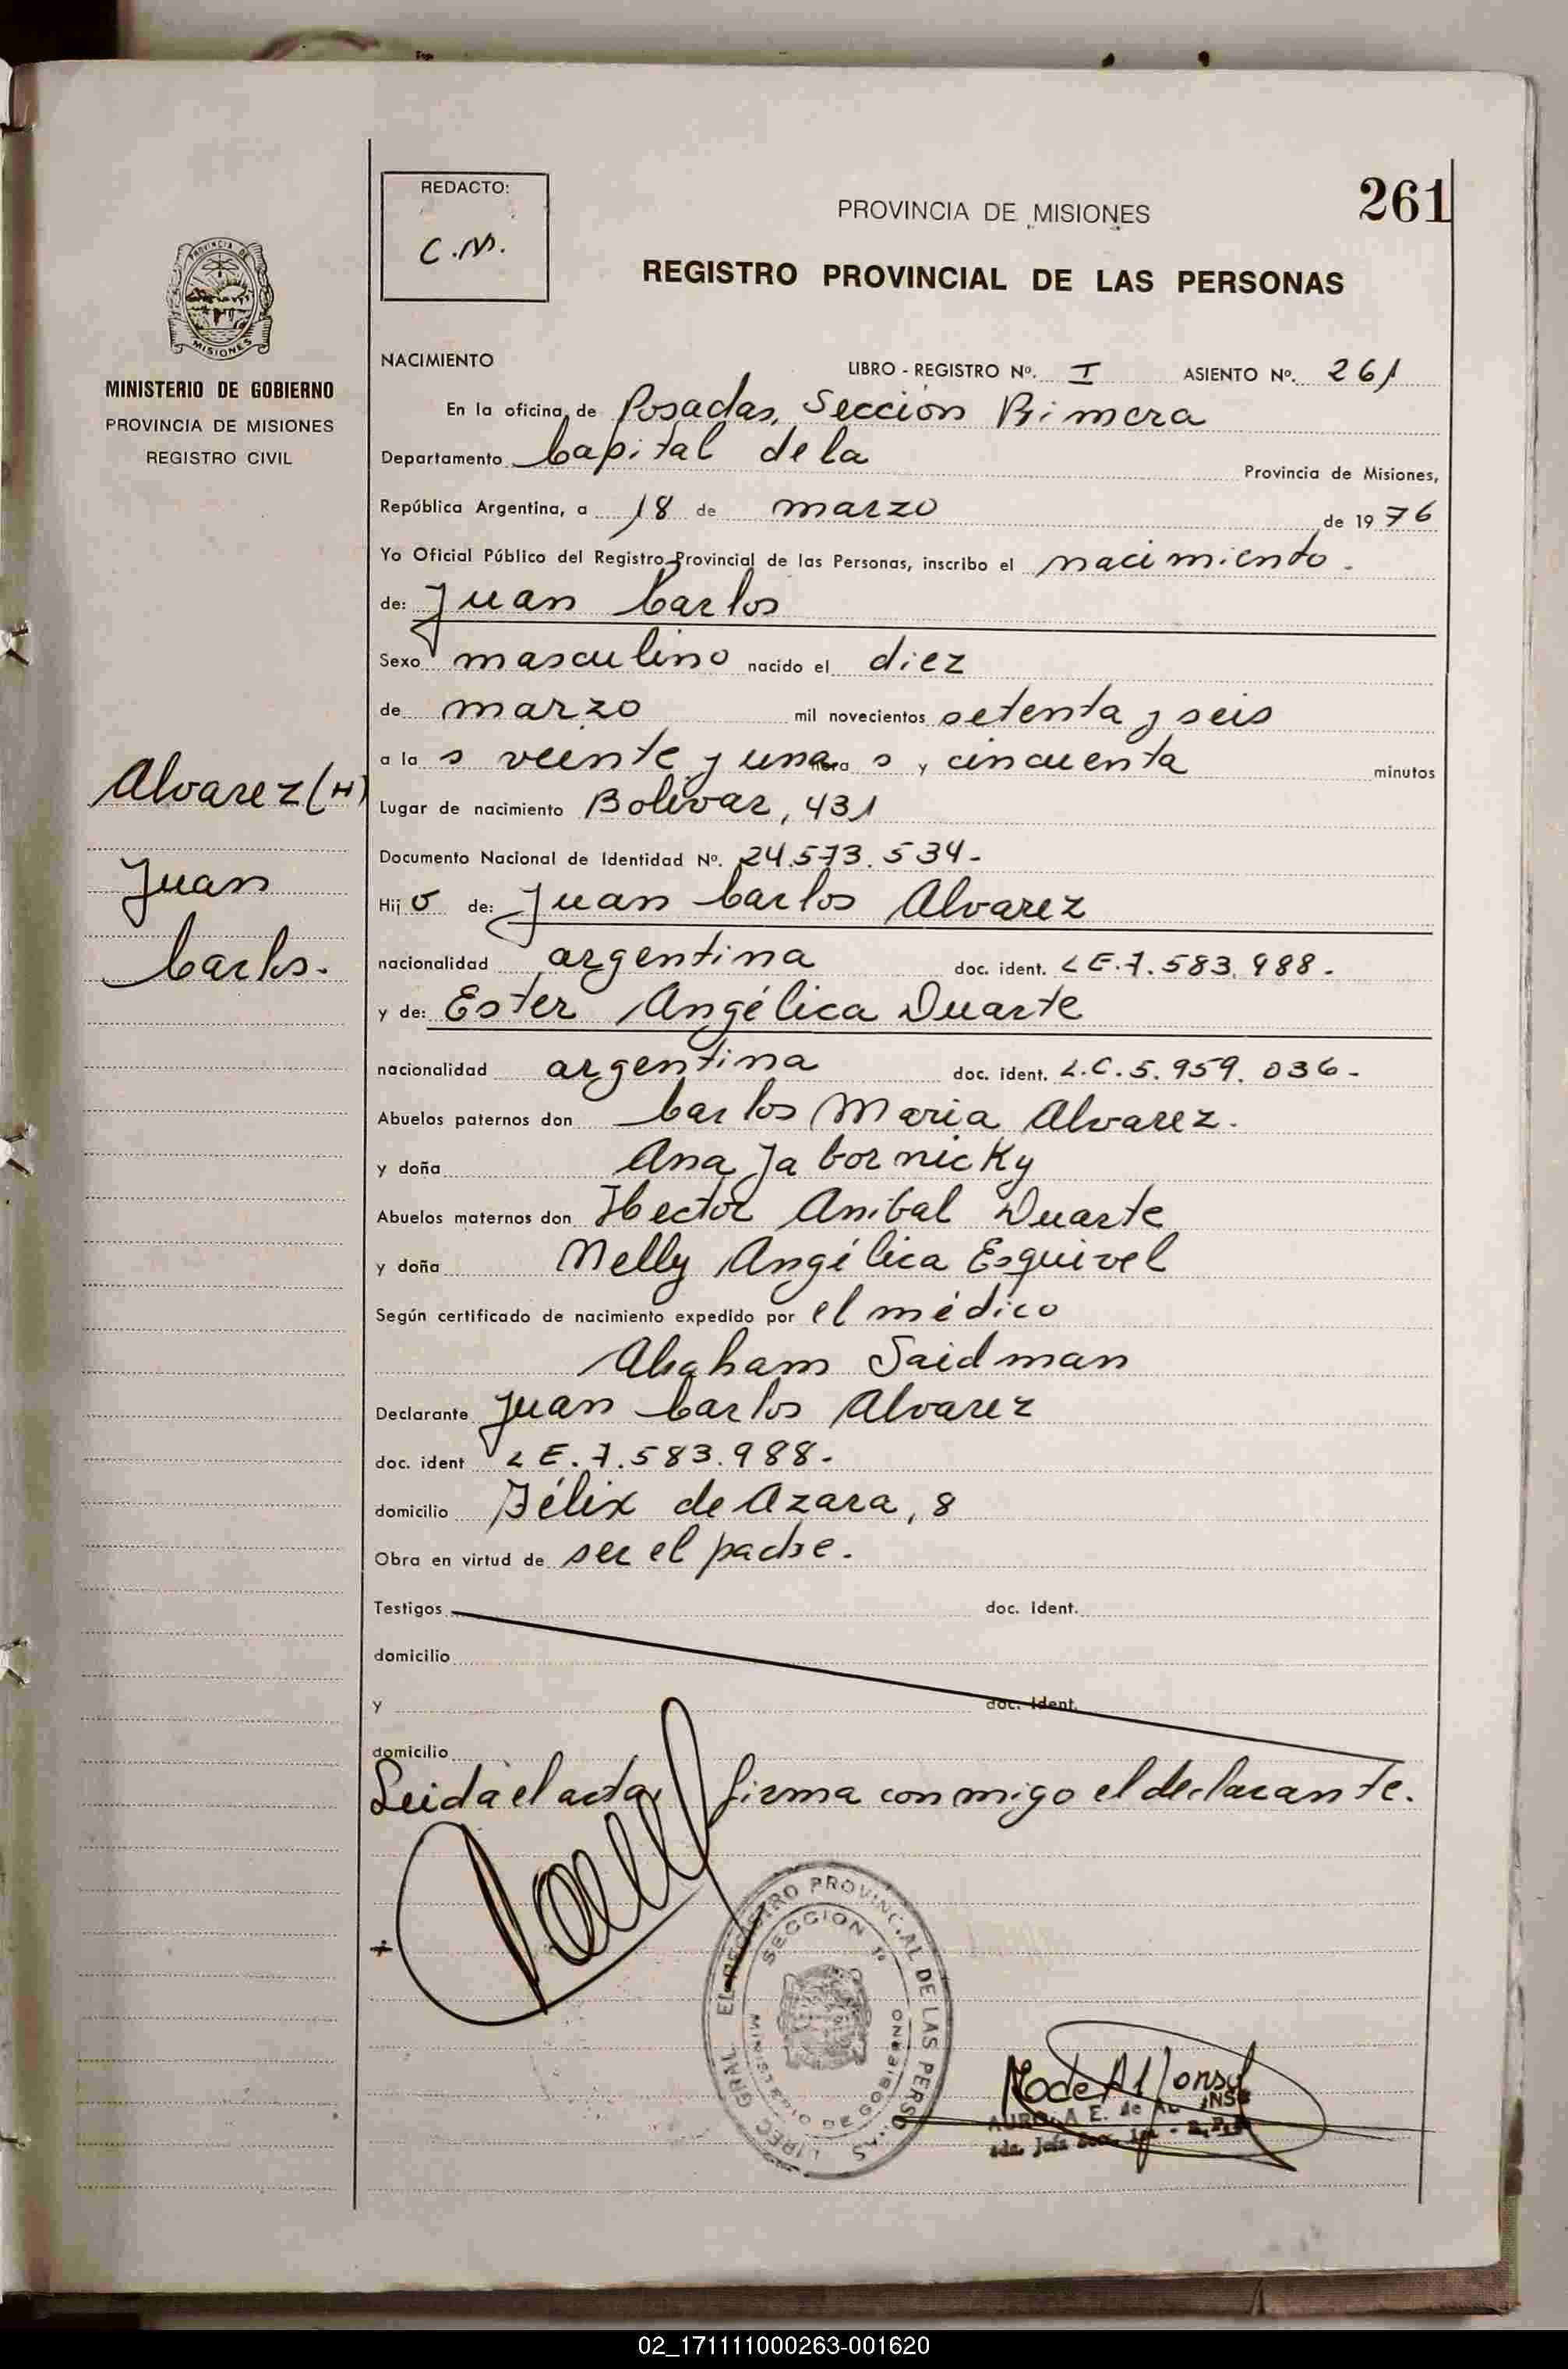 261
REDACTO:
C.M.
PROVINCIA DE MISIONES
REGISTRO PROVINCIAL DE LAS PERSONAS
PROVINCIA DE
MISIONES
MINISTERIO DE GOBIERNO
PROVINCIA DE MISIONES
REGISTRO CIVIL
Alvarez (H)
Juan
Carlos.
NACIMIENTO
LIBRO - REGISTRO Nº. I ASIENTO Nº. 261
En la oficina de Posadas, Sección Primera
Departamento Capital de la Provincia de Misiones,
República Argentina, a 18 de marzo de 1976
Yo Oficial Público del Registro Provincial de las Personas, inscribo el nacimiento.
de: Juan Carlos
Sexo masculino nacido el diez
de marzo mil novecientos setenta y seis
a la s veinte y una hora s y cincuenta minutos
Lugar de nacimiento Bolívar, 431
Documento Nacional de Identidad Nº. 24.573.534-
Hij o de: Juan Carlos Alvarez
nacionalidad argentina doc. ident. LE.7.583.988.
y de: Ester Angélica Duarte
nacionalidad argentina doc. ident. L.C.5.959.036-
Abuelos paternos don Carlos Maria Alvarez.
y doña Ana Jabornicky
Abuelos maternos don Hector Anibal Duarte
y doña Nelly Angélica Esquivel
Según certificado de nacimiento expedido por el médico
Abraham Saidman
Declarante Juan Carlos Alvarez
doc. ident LE.7.583.988.
domicilio Félix de Azara, 8
Obra en virtud de ser el padre.
Testigos doc. Ident.
domicilio
y doc. Ident.
domicilio
Leida el acta, firma conmigo el declarante.
EL REGISTRO PROVINCIAL DE LAS PERSONAS
SECCION 1ª
MINISTERIO DE GOBIERNO
DIREC. GRAL.
E. de
02_171111000263-001620